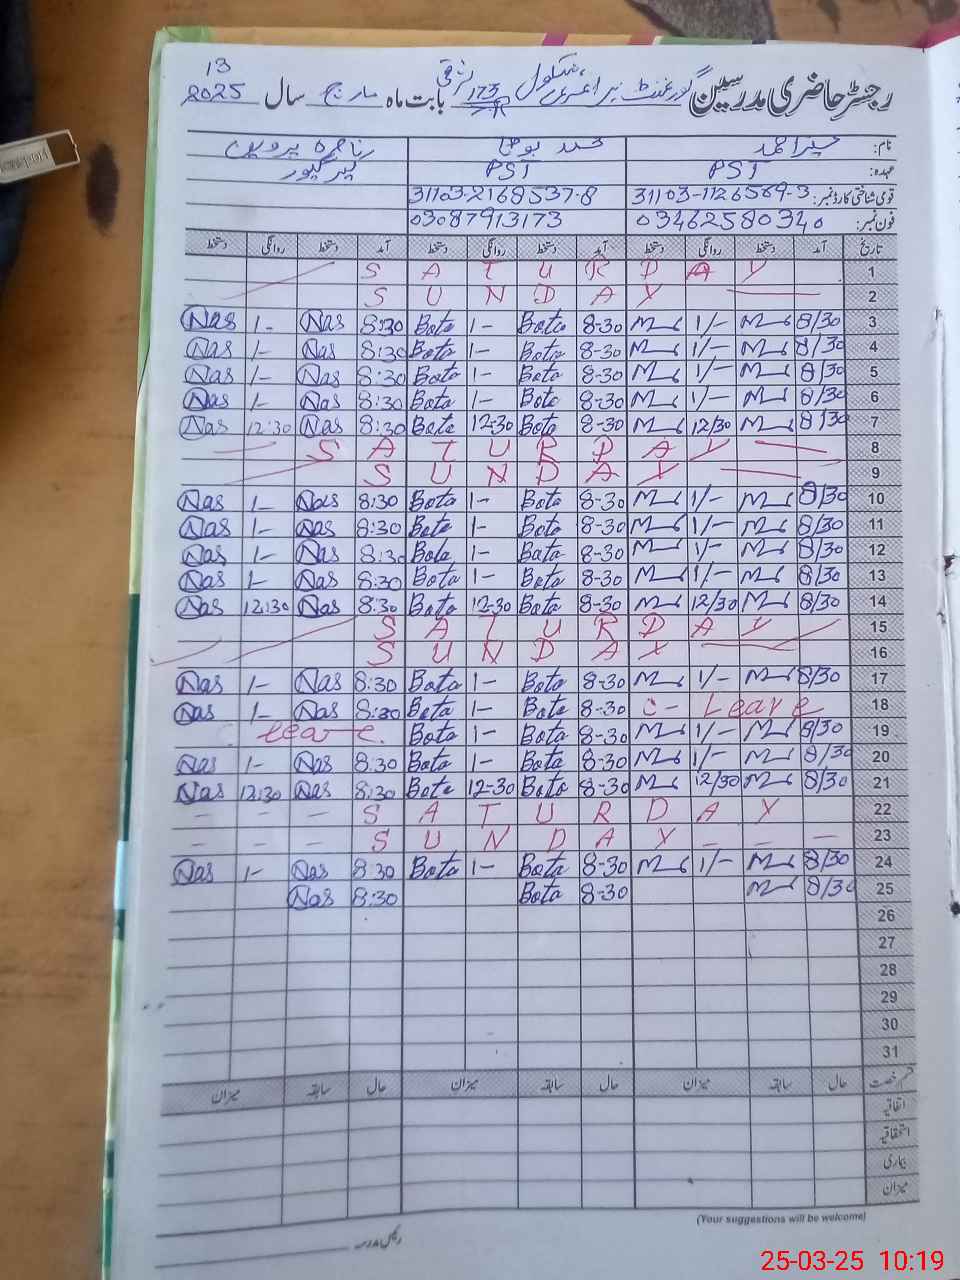 13
رجسٹر حاضری مدرسین گورنمنٹ پرائمری سکول 173 بابت ماہ مارچ سال 2025
نام:
عہدہ: PST PST
قومی شناختی کارڈ نمبر: 31103-1126589-3 31103-2168537-8
فون نمبر: 03462580340 03087913173
تاریخ آمد دستخط روانگی دستخط آمد دستخط روانگی دستخط آمد دستخط روانگی دستخط
1 SATURDAY
2 SUNDAY
3 8/30 1/- 8-30 Bota 1- Bota 8:30 Nas 1- Nas
4 8/30 1/- 8-30 Bota 1- Bota 8:30 Nas 1- Nas
5 8/30 1/- 8-30 Bota 1- Bota 8:30 Nas 1- Nas
6 8/30 1/- 8-30 Bota 1- Bota 8:30 Nas 1- Nas
7 8/30 12/30 8-30 Bota 12-30 Bota 8:30 Nas 12:30 Nas
8 SATURDAY
9 SUNDAY
10 8/30 1/- 8-30 Bota 1- Bota 8:30 Nas 1- Nas
11 8/30 1/- 8-30 Bota 1- Bota 8:30 Nas 1- Nas
12 8/30 1/- 8-30 Bota 1- Bota 8:30 Nas 1- Nas
13 8/30 1/- 8-30 Bota 1- Bota 8:30 Nas 1- Nas
14 8/30 12/30 8-30 Bota 12-30 Bota 8:30 Nas 12:30 Nas
15 SATURDAY
16 SUNDAY
17 8/30 1/- 8-30 Bota 1- Bota 8:30 Nas 1- Nas
18 C- Leave 8-30 Bota 1- Bota 8:30 Nas 1- Nas
19 8/30 1/- 8-30 Bota 1- Bota leave
20 8/30 1/- 8-30 Bota 1- Bota 8:30 Nas 1- Nas
21 8/30 12/30 8-30 Bota 12-30 Bota 8:30 Nas 12:30 Nas
22 SATURDAY
23 SUNDAY
24 8/30 1/- 8-30 Bota 1- Bota 8:30 Nas 1- Nas
25 8/30 8-30 Bota 8:30 Nas
26
27
28
29
30
31
قسم رخصت حال سابقہ میزان حال سابقہ میزان حال سابقہ میزان
اتفاقیہ
استحقاقیہ
بیماری
میزان
(Your suggestions will be welcome)
رئیس مدرسہ
25-03-25 10:19